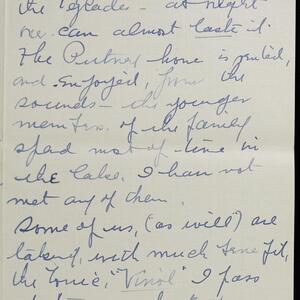 the 'glades - at night
we can almost taste it.
The Putney home is rented,
and enjoyed, from the
sounds - the younger
members of the family
spend most of time in
the lake. I have not
met any of them.
Some of us, (as well) are
taking, with much benefit,
the tonic, "Vinol" I pass